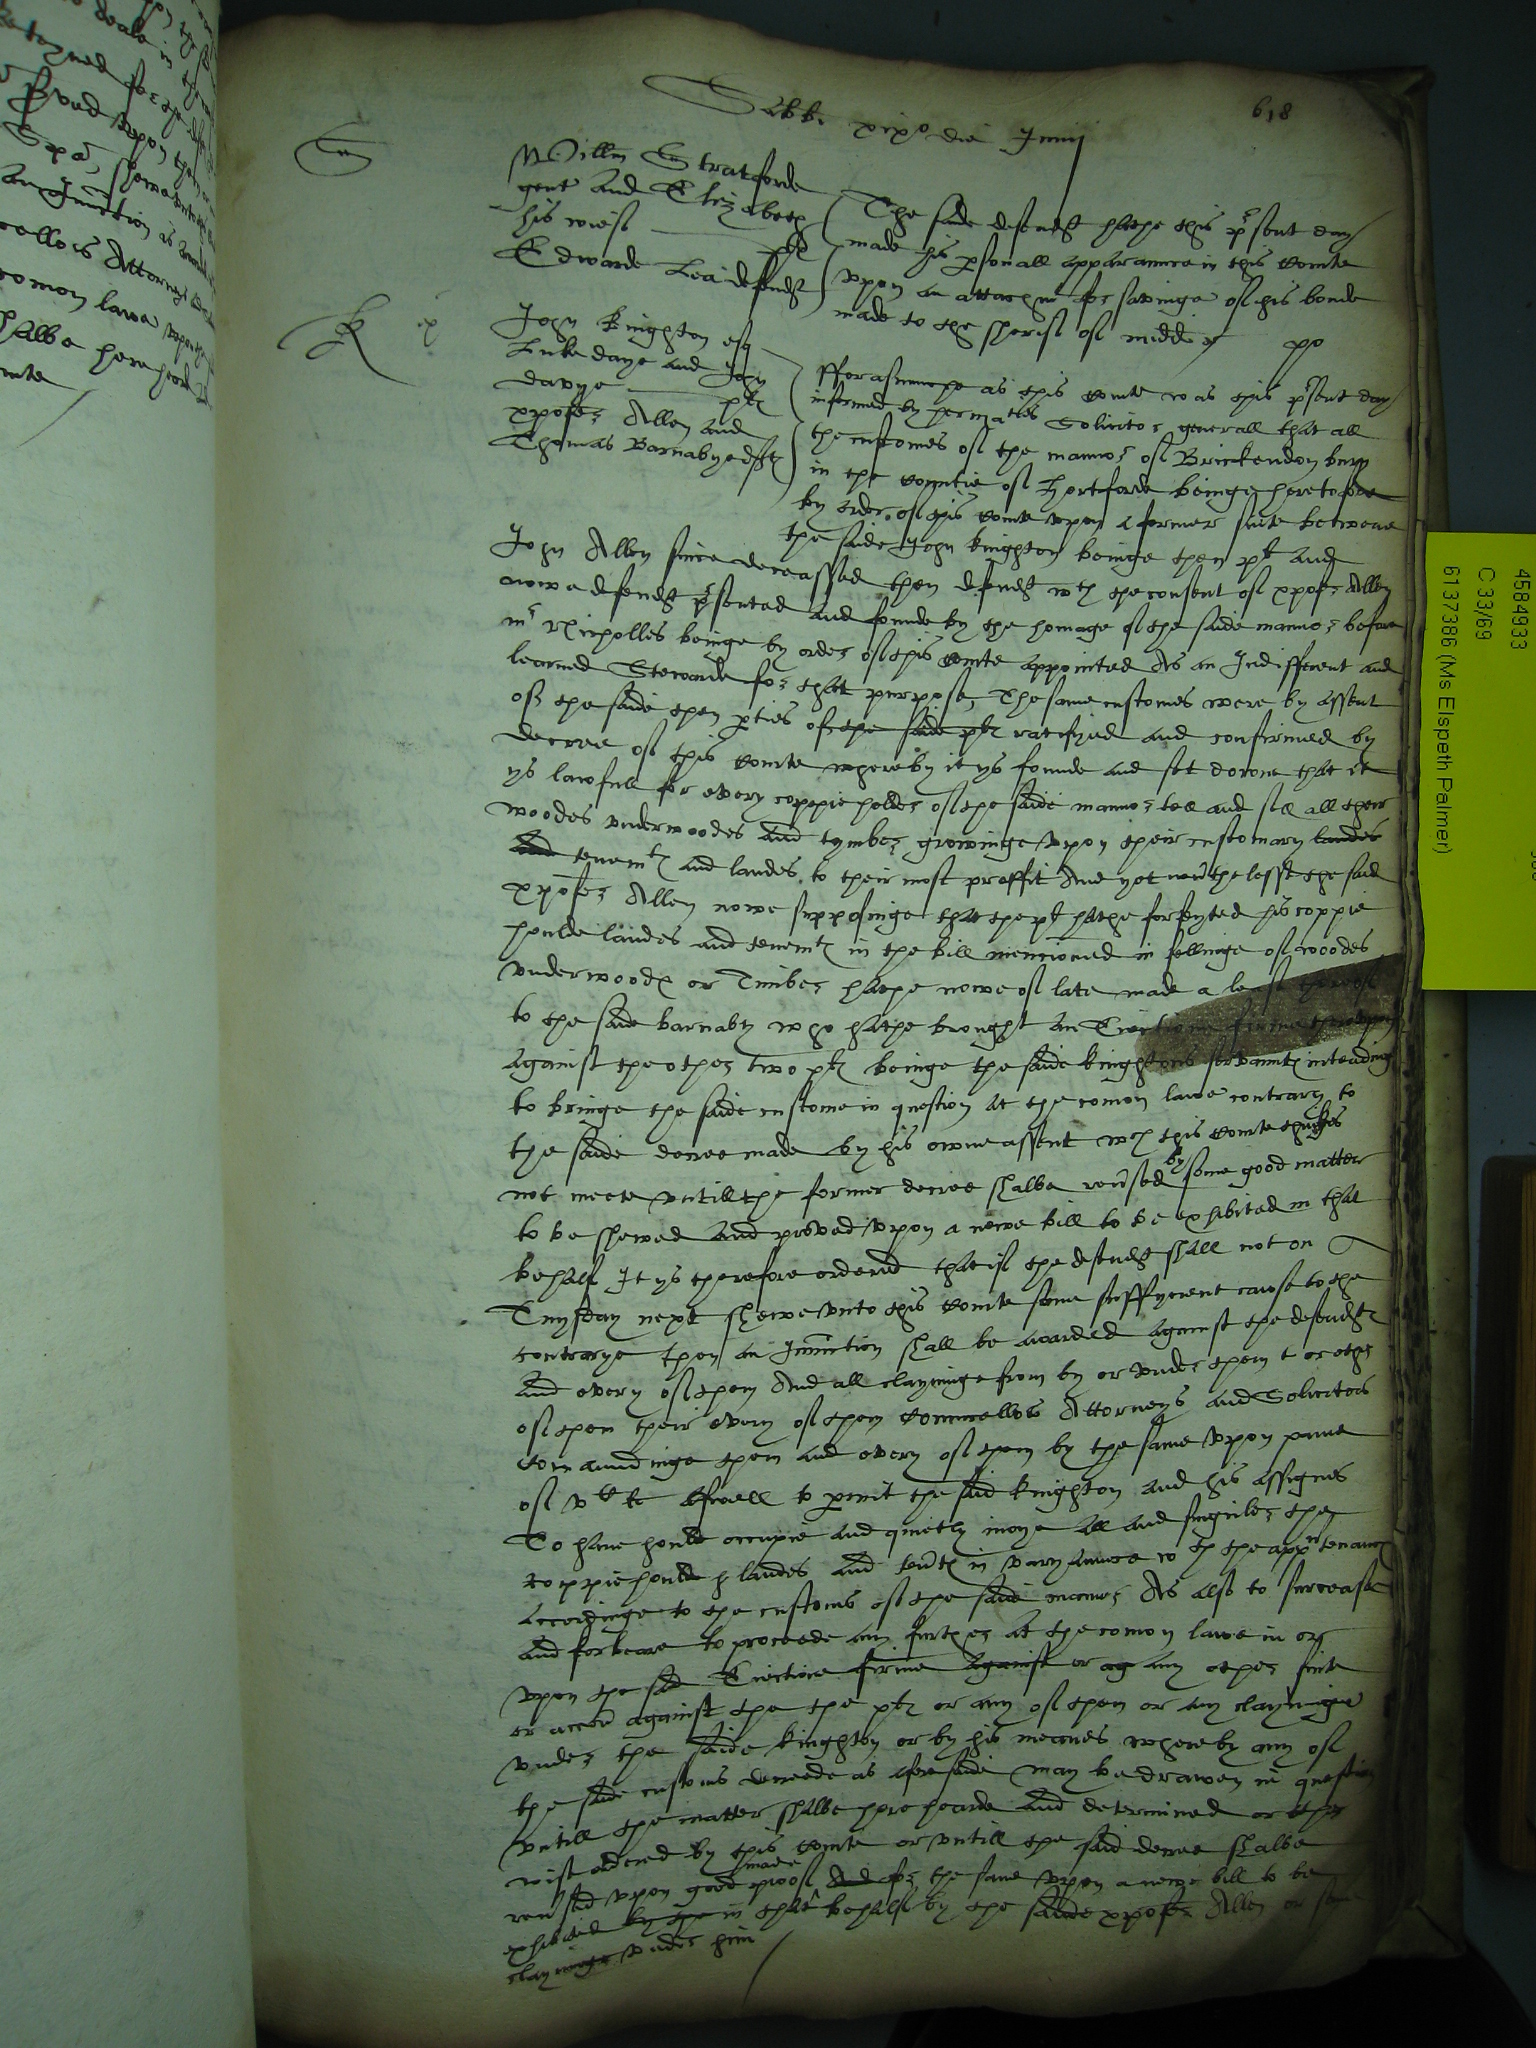 618
Sabbti xixo die Junij
S
Willm Stratforde
gent and Elizabeth
his wief plts
Edwarde Lea defendt
The saide defendt hathe this pñt day
made his psonall apparaunce in this Courte
vpon an attachmt for savinge of his bonde
made to the sherif of Midds
K
John Knighton esq
Luke daye and John
davye plts
xpofer Allen and
Thomas Barnabye defts
fforasmuche as this Courte was this pſent day
informed by her maties Solicitor generall that all
the customes of the mannor of Brickendon bury
in the Countie of Hertforde beinge heretofore
by order of this Courte vpon a former suite betwene
the saide John Knighton beinge then plt and
John Allen since deceassed then defendt wth the consent of xpofer Allen
nowe defendt pſented and founde by the homage of the saide mannor before
mr Nicholles beinge by order of this Courte appointed As an Indifferent and
learned Stewarde for that purpose, The same customes were by assent
of the saide then pties of the saide plts ratifyed and confirmed by
decree of this Courte whereby it ys founde and set downe that it
ys lawfull for every coppie holder of the saide mannor to fell and sell all their
woodes vnderwoodes and tymber growinge vpon their customary landes
and tenemts and landes to their most proffit And yet neutheles the said
xpofer Allen nowe supposinge that the plt hathe forfeyted his coppie
houlde landes and tenemts in the bill mencioned in fellinge of woodes
vnderwoods or Timber hathe nowe of late made a lease thereof
to the saide barnaby who hathe brought an Eiectione firme therevpon
against the other two plts beinge the saide knightons servaunts intendinge
to bringe the saide custome in question at the comon lawe contrary to
the saide decree made by his owne assent wch this Courte thinkes
not meete vntill the former decree shalbe reused by some good matter
to be shewed and proved vpon a newe bill to be exhibited in that
behalf It ys therefore ordered that if the defendt shall not on
Tuysday next shewe vnto this Courte some suffycient cause to the
contrarye then an Iniunction shall be awarded against the defendts
and every of them And all clayminge from by or vnder them or ether
of them their every of them Councellors Attorneys and Solicitors
Comaundinge them and every of them by the same vpon paine
of vc li aswell to pmit the said knighton and his assignes
To have houlde occupie and quietly inioye all and singuler the
coppiehoulde landes and temts in varyaunce wth the apptenancs
accordinge to the customs of the saide mannor As also to surcease
and forbeare to proceede any further at the comon lawe in or
vpon the said Eiectione firme against or ag any other suite
or accon against the the plts or any of them or any clayminge
vnder the saide knighton or by his meanes whereby any of
the saide customs decreede as aforesaide may be drawen in question
vntill the matter shalbe here hearde and determined or other
wise ordered by this Courte or vntill the said decree shalbe
reused vpon good proof made and for the same vpon a newe bill to be
exhibited by the in that behalf by the saide xpofer Allen or some
clayminge vnder him
4584933
C 33/69
6137386 (Ms Elspeth Palmer)